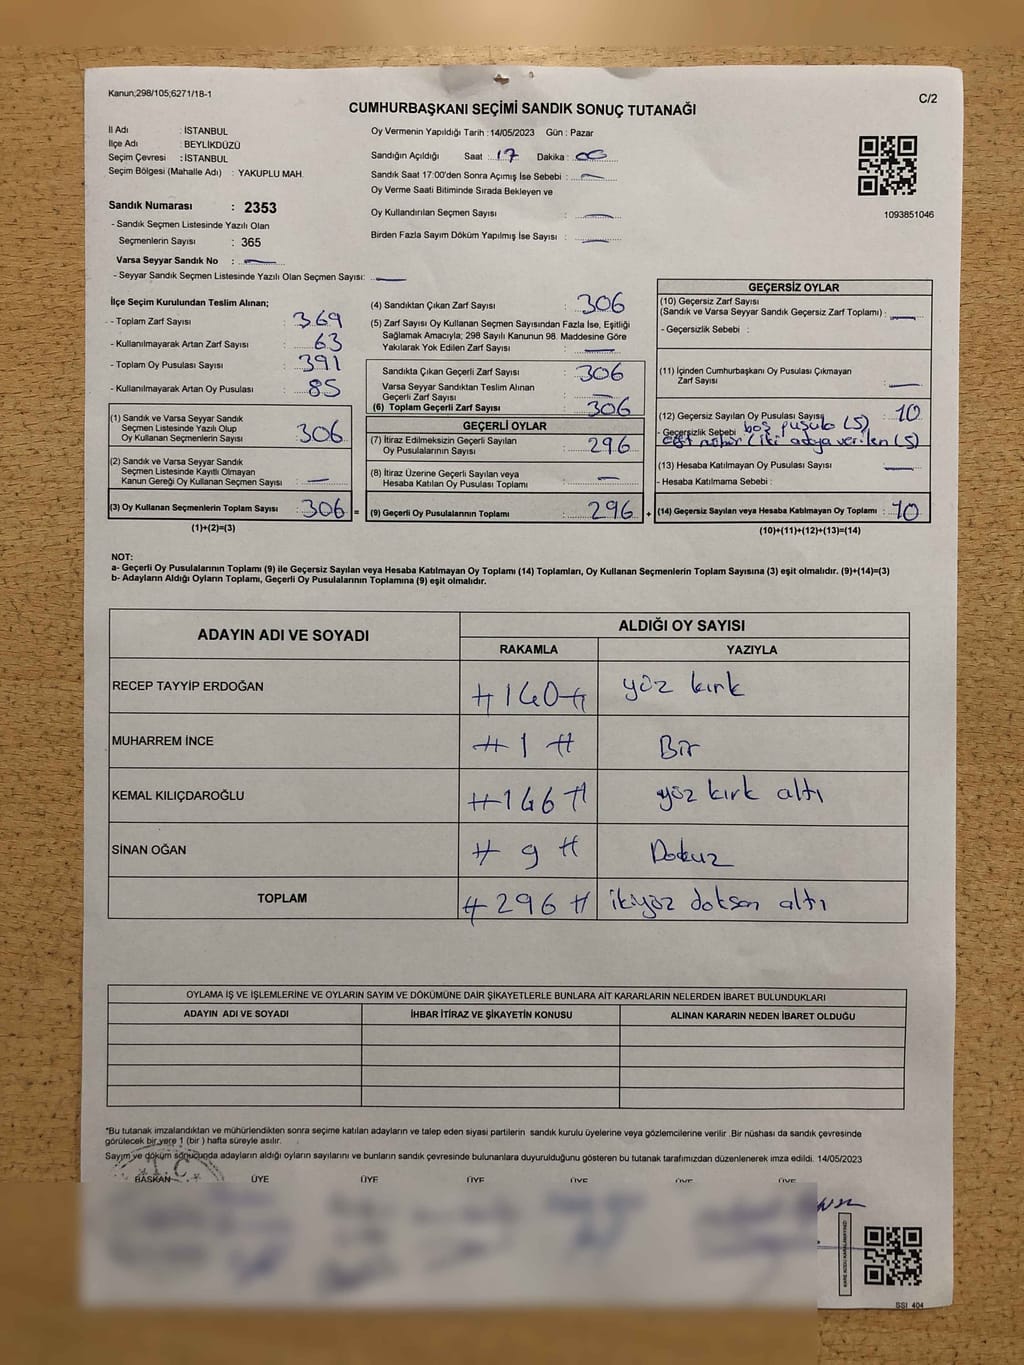 Kanun;298/105;6271/18-1
C/2
CUMHURBAŞKANI SEÇİMİ SANDIK SONUÇ TUTANAĞI
İl Adı : İSTANBUL
İlçe Adı : BEYLİKDÜZÜ
Seçim Çevresi : İSTANBUL
Seçim Bölgesi (Mahalle Adı) : YAKUPLU MAH.
Sandık Numarası : 2353
- Sandık Seçmen Listesinde Yazılı Olan
Seçmenlerin Sayısı : 365
Varsa Seyyar Sandık No : —
- Seyyar Sandık Seçmen Listesinde Yazılı Olan Seçmen Sayısı: —
Oy Vermenin Yapıldığı Tarih : 14/05/2023 Gün : Pazar
Sandığın Açıldığı Saat : 17 Dakika : 00
Sandık Saat 17:00'den Sonra Açımış İse Sebebi : —
Oy Verme Saati Bitiminde Sırada Bekleyen ve
Oy Kullandırılan Seçmen Sayısı : —
Birden Fazla Sayım Döküm Yapılmış İse Sayısı : —
1093851046
İlçe Seçim Kurulundan Teslim Alınan;
- Toplam Zarf Sayısı : 369
- Kullanılmayarak Artan Zarf Sayısı : 63
- Toplam Oy Pusulası Sayısı : 391
- Kullanılmayarak Artan Oy Pusulası : 85
(1) Sandık ve Varsa Seyyar Sandık
Seçmen Listesinde Yazılı Olup
Oy Kullanan Seçmenlerin Sayısı : 306
(2) Sandık ve Varsa Seyyar Sandık
Seçmen Listesinde Kayıtlı Olmayan
Kanun Gereği Oy Kullanan Seçmen Sayısı : —
(3) Oy Kullanan Seçmenlerin Toplam Sayısı : 306 =
(1)+(2)=(3)
(4) Sandıktan Çıkan Zarf Sayısı : 306
(5) Zarf Sayısı Oy Kullanan Seçmen Sayısından Fazla İse, Eşitliği
Sağlamak Amacıyla; 298 Sayılı Kanunun 98. Maddesine Göre
Yakılarak Yok Edilen Zarf Sayısı : —
Sandıkta Çıkan Geçerli Zarf Sayısı : 306
Varsa Seyyar Sandıktan Teslim Alınan
Geçerli Zarf Sayısı : —
(6) Toplam Geçerli Zarf Sayısı : 306
GEÇERLİ OYLAR
(7) İtiraz Edilmeksizin Geçerli Sayılan
Oy Pusulalarının Sayısı : 296
(8) İtiraz Üzerine Geçerli Sayılan veya
Hesaba Katılan Oy Pusulası Toplamı : —
(9) Geçerli Oy Pusulalarının Toplamı : 296 +
GEÇERSİZ OYLAR
(10) Geçersiz Zarf Sayısı
(Sandık ve Varsa Seyyar Sandık Geçersiz Zarf Toplamı) : —
- Geçersizlik Sebebi :
(11) İçinden Cumhurbaşkanı Oy Pusulası Çıkmayan
Zarf Sayısı : —
(12) Geçersiz Sayılan Oy Pusulası Sayısı : 10
- Geçersizlik Sebebi : boş pusula (5)
çift mühür (iki adya verilen (5)
(13) Hesaba Katılmayan Oy Pusulası Sayısı : —
- Hesaba Katılmama Sebebi :
(14) Geçersiz Sayılan veya Hesaba Katılmayan Oy Toplamı : 10
(10)+(11)+(12)+(13)=(14)
NOT:
a- Geçerli Oy Pusulalarının Toplamı (9) ile Geçersiz Sayılan veya Hesaba Katılmayan Oy Toplamı (14) Toplamları, Oy Kullanan Seçmenlerin Toplam Sayısına (3) eşit olmalıdır. (9)+(14)=(3)
b- Adayların Aldığı Oyların Toplamı, Geçerli Oy Pusulalarının Toplamına (9) eşit olmalıdır.
ADAYIN ADI VE SOYADI
ALDIĞI OY SAYISI
RAKAMLA YAZIYLA
RECEP TAYYİP ERDOĞAN #140# yüz kırk
MUHARREM İNCE #1# Bir
KEMAL KILIÇDAROĞLU #146# yüz kırk altı
SİNAN OĞAN #9# Dokuz
TOPLAM #296# ikiyüz doksan altı
OYLAMA İŞ VE İŞLEMLERİNE VE OYLARIN SAYIM VE DÖKÜMÜNE DAİR ŞİKAYETLERLE BUNLARA AİT KARARLARIN NELERDEN İBARET BULUNDUKLARI
ADAYIN ADI VE SOYADI İHBAR İTİRAZ VE ŞİKAYETİN KONUSU ALINAN KARARIN NEDEN İBARET OLDUĞU
*Bu tutanak imzalandıktan ve mühürlendikten sonra seçime katılan adayların ve talep eden siyasi partilerin sandık kurulu üyelerine veya gözlemcilerine verilir .Bir nüshası da sandık çevresinde
görülecek bir yere 1 (bir ) hafta süreyle asılır.
Sayım ve döküm sonucunda adayların aldığı oyların sayılarını ve bunların sandık çevresinde bulunanlara duyurulduğunu gösteren bu tutanak tarafımızdan düzenlenerek imza edildi. 14/05/2023
T.C
BAŞKAN ÜYE ÜYE ÜYE ÜYE ÜYE ÜYE
KARE KODU KARALAMAYINIZ!
SSI_404